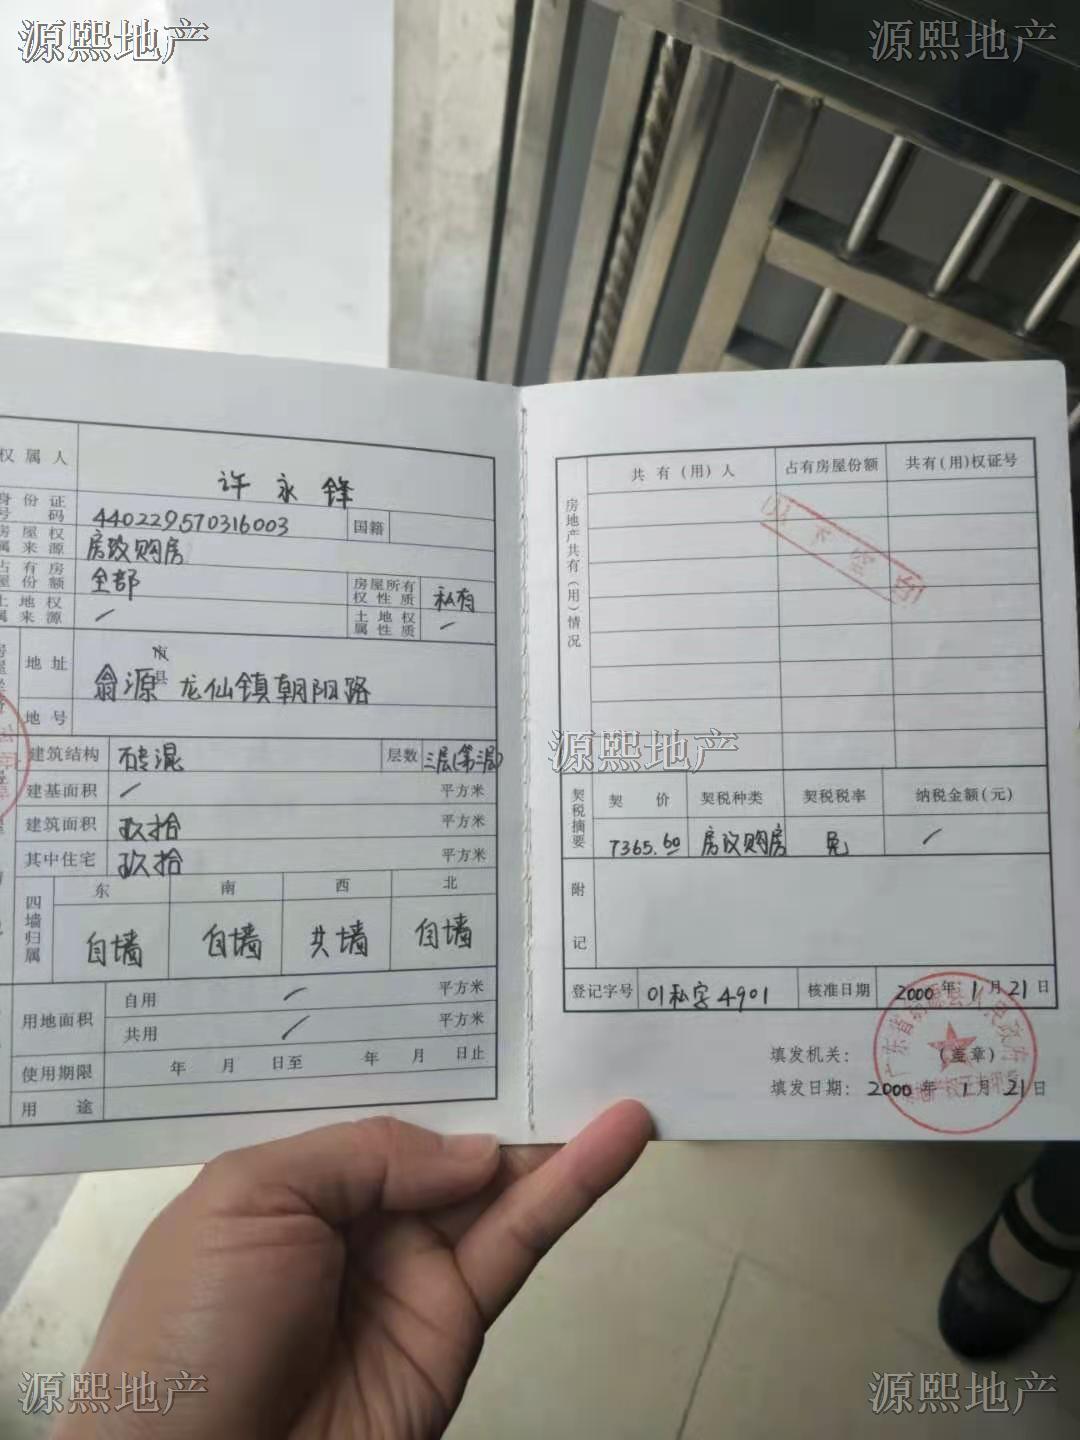 源熙地产
源熙地产
权属人 许永锋
身份证号码 440229570316003 国籍
房屋权属来源 房改购房
占有房屋份额 全部 房屋所有权性质 私有
土地权属来源 / 土地权属性质 /
地址 翁源 市县 龙仙镇朝阳路
地号
建筑结构 砖混 层数 三层(第三层)
建基面积 / 平方米
建筑面积 玖拾 平方米
其中住宅 玖拾 平方米
四墙归属 东 南 西 北
自墙 自墙 共墙 自墙
用地面积 自用 / 平方米
共用 / 平方米
使用期限 年 月 日至 年 月 日止
用途
房地产共有(用)情况 共有(用)人 占有房屋份额 共有(用)权证号
源熙地产
契税摘要 契价 契税种类 契税税率 纳税金额(元)
7365.60 房改购房 免 /
附记
登记字号 01私字4901 核准日期 2000年1月21日
填发机关: (盖章)
填发日期: 2000年1月21日
源熙地产
源熙地产